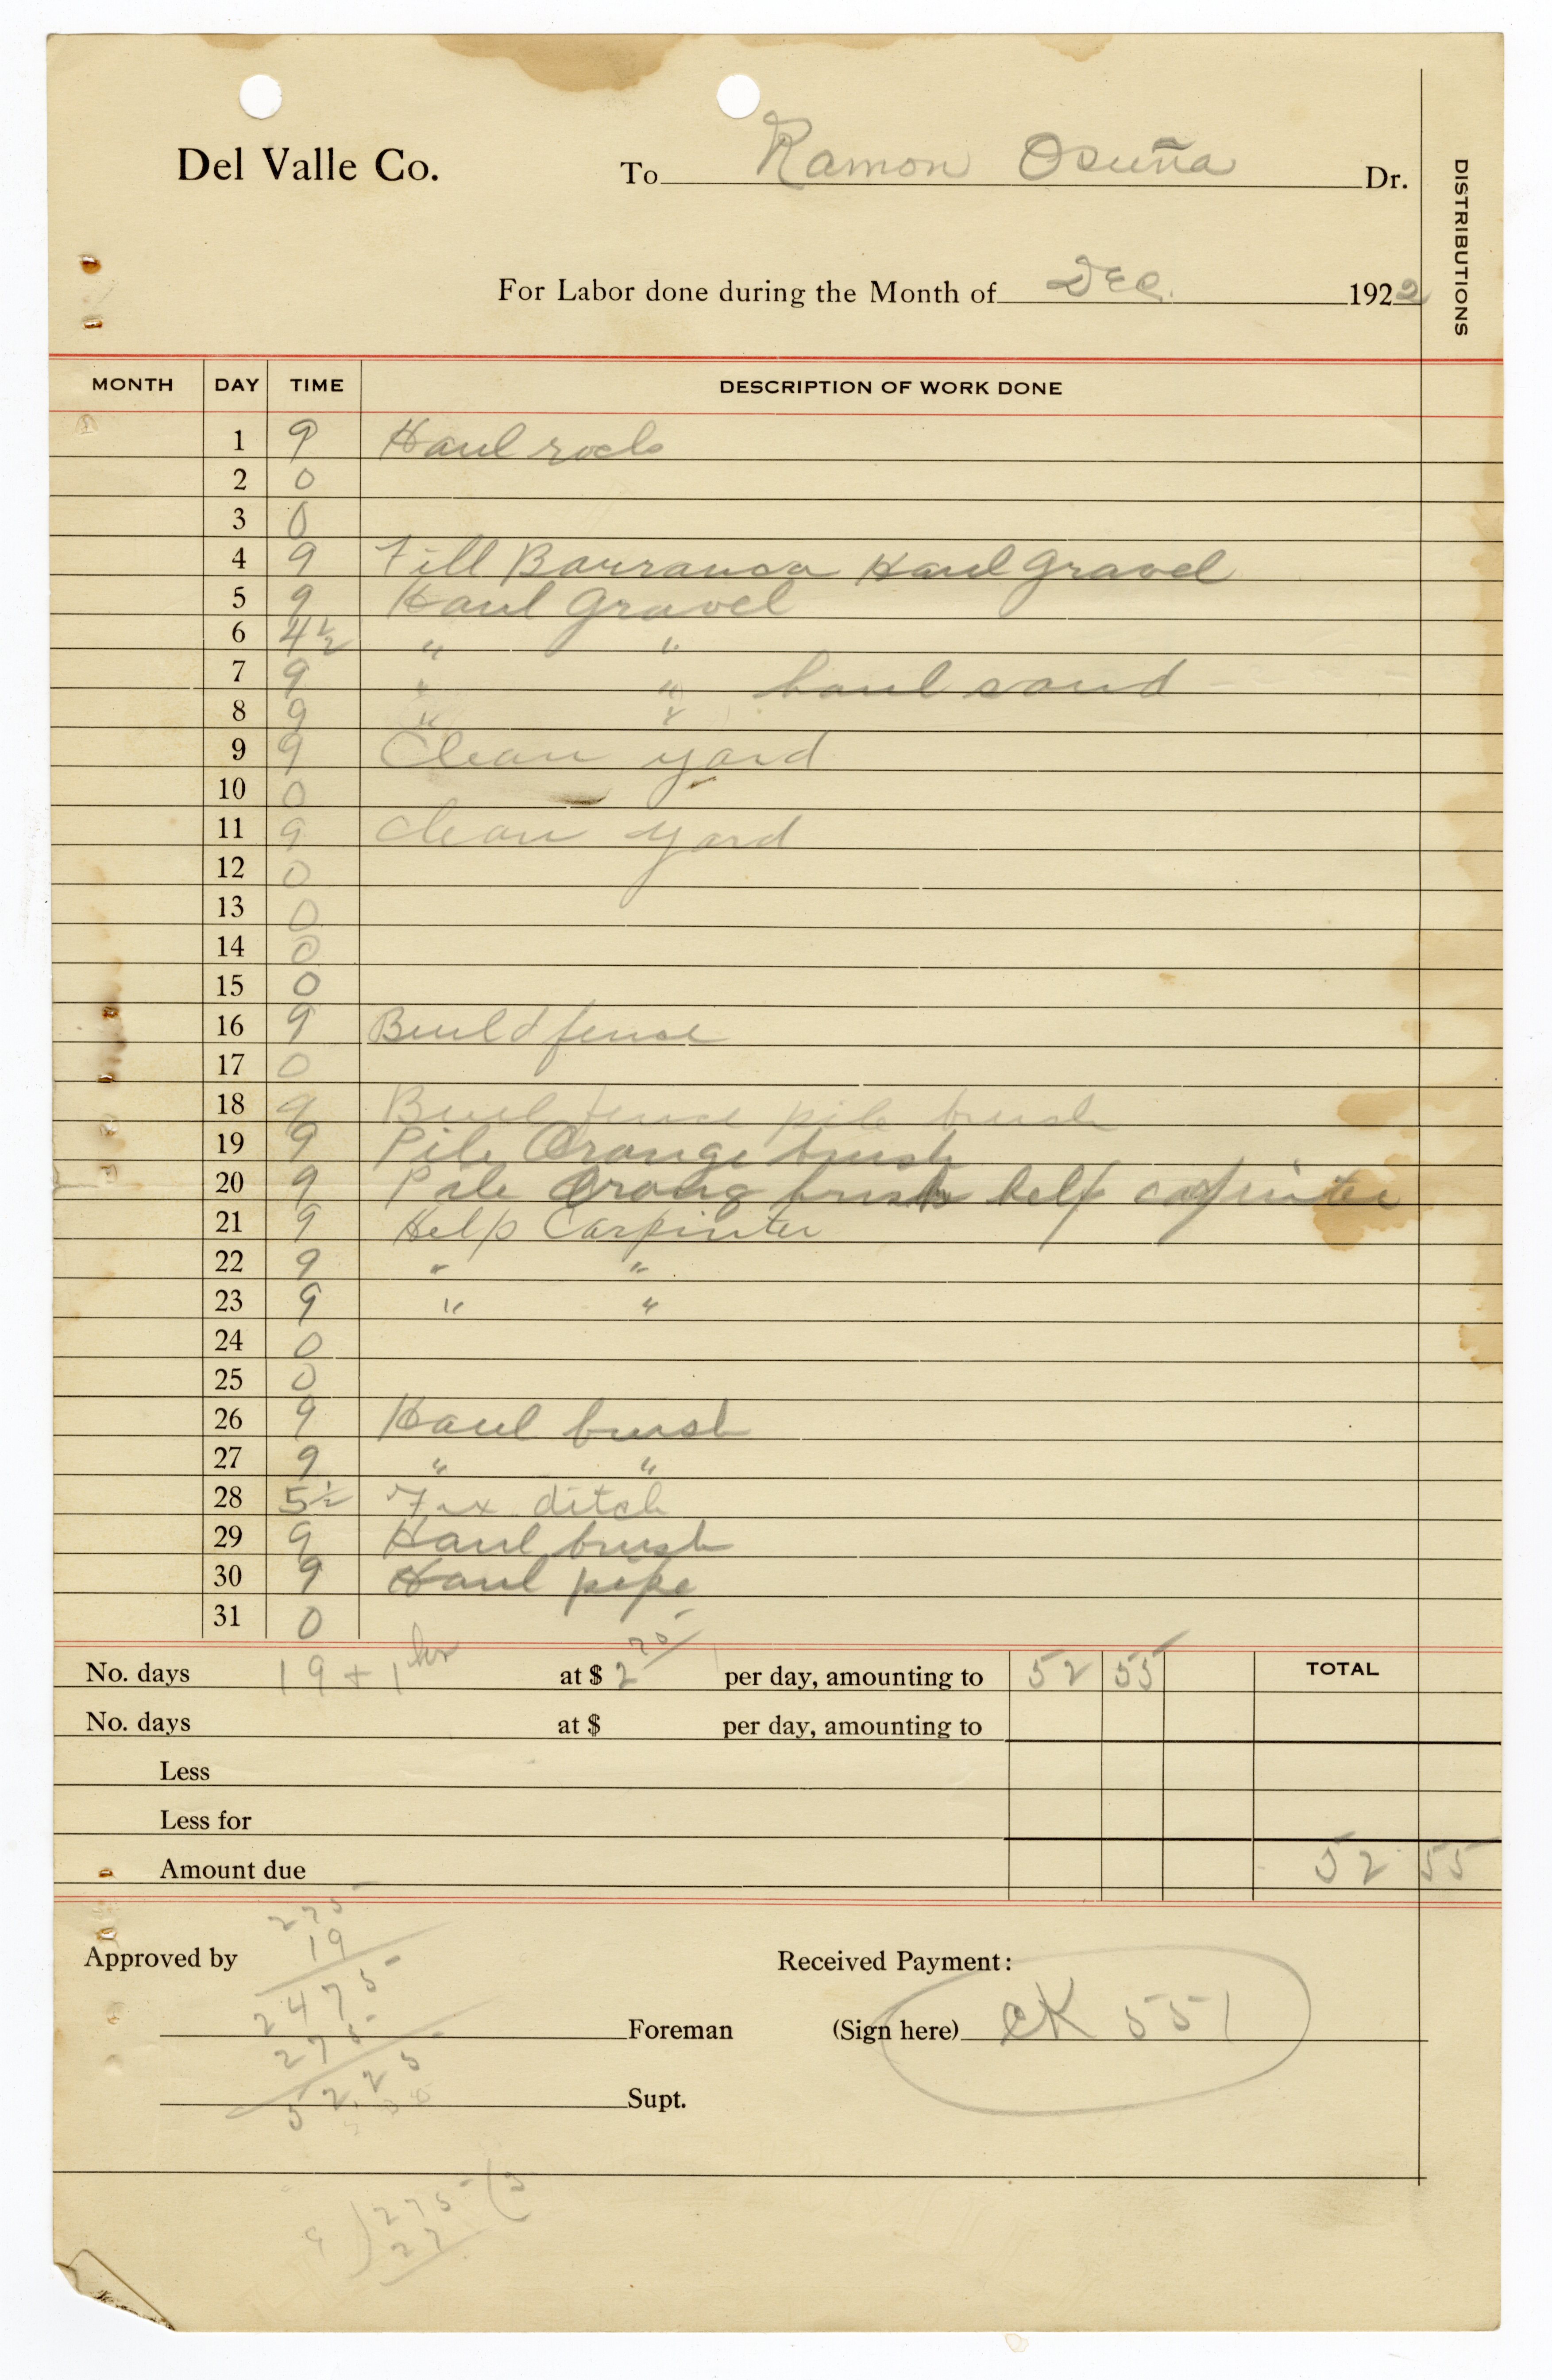 Del Valle Co. To Ramon Osuña Dr.
DISTRIBUTIONS
For Labor done during the Month of Dec. 1922
MONTH DAY TIME DESCRIPTION OF WORK DONE
1 9 Haul rock
2 0
3 0
4 9 Fill Barranca Haul Gravel
5 9 Haul Gravel
6 4½ " "
7 9 " " haul sand
8 9 " "
9 9 Clean yard
10 0
11 9 clean yard
12 0
13 0
14 0
15 0
16 9 Build fence
17 0
18 9 Buil fence pile brush
19 9 Pile Orange brush
20 9 Pile Orang brush help carpinter
21 9 Help Carpinter
22 9 " "
23 9 " "
24 0
25 0
26 9 Haul brush
27 9 " "
28 5½ Fix ditch
29 9 Haul brush
30 9 Haul pipe
31 0
No. days 19 + 1 hr at $ 2 75 per day, amounting to 52 55 TOTAL
No. days at $ per day, amounting to
Less
Less for
Amount due 52 55
275
19
Approved by Received Payment:
2475
275
Foreman (Sign here) CK 551
52.25
Supt.
9 ) 275 ( 3
27